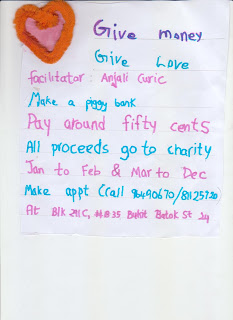 Give money
Give Love
facilitator: Anjali Curic
Make a piggy bank
Pay around fifty cents
All proceeds go to charity
Jan to Feb & Mar to Dec
Make appt (call 96490670/81125720
At Blk 211C, Bukit Batok St 24